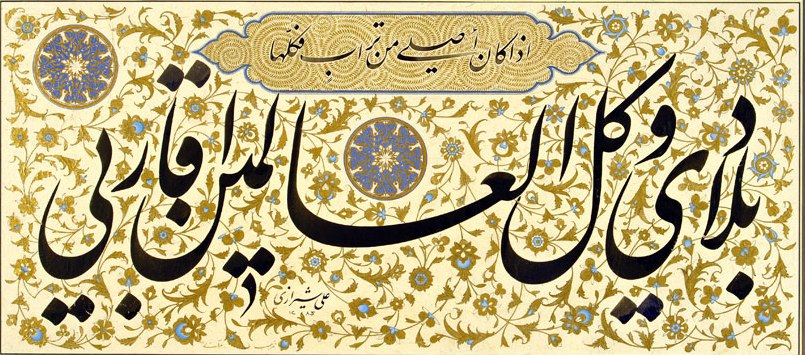 اذا كان أصلي من تراب فكلّها
بلادي وكل العالمين اقاربي
علی شیرازی